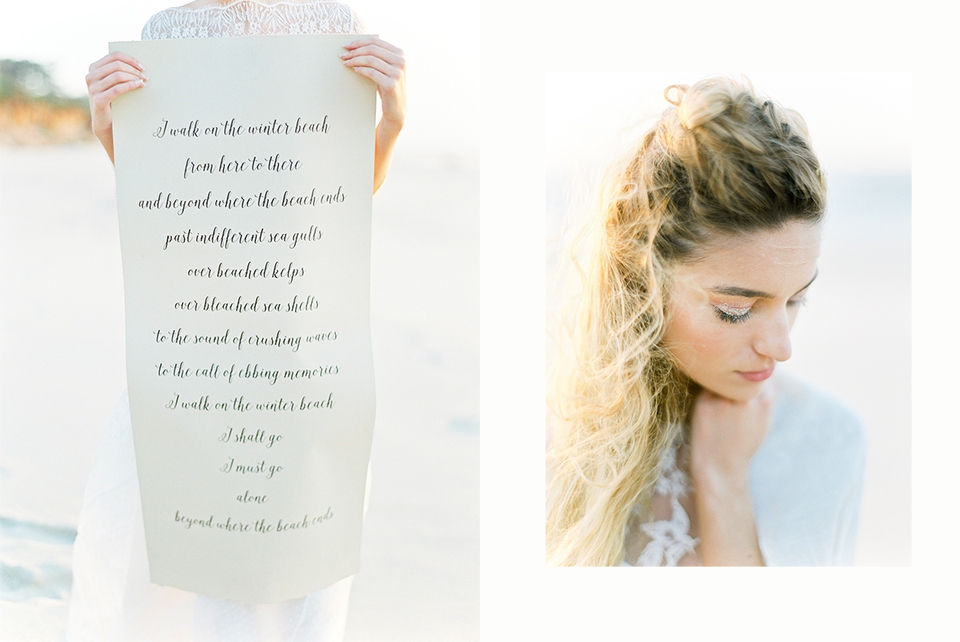 I walk on the winter beach
from here to there
and beyond where the beach ends
past indifferent sea gulls
over beached kelps
over bleached sea shells
to the sound of crushing waves
to the call of ebbing memories
I walk on the winter beach
I shall go
I must go
alone
beyond where the beach ends